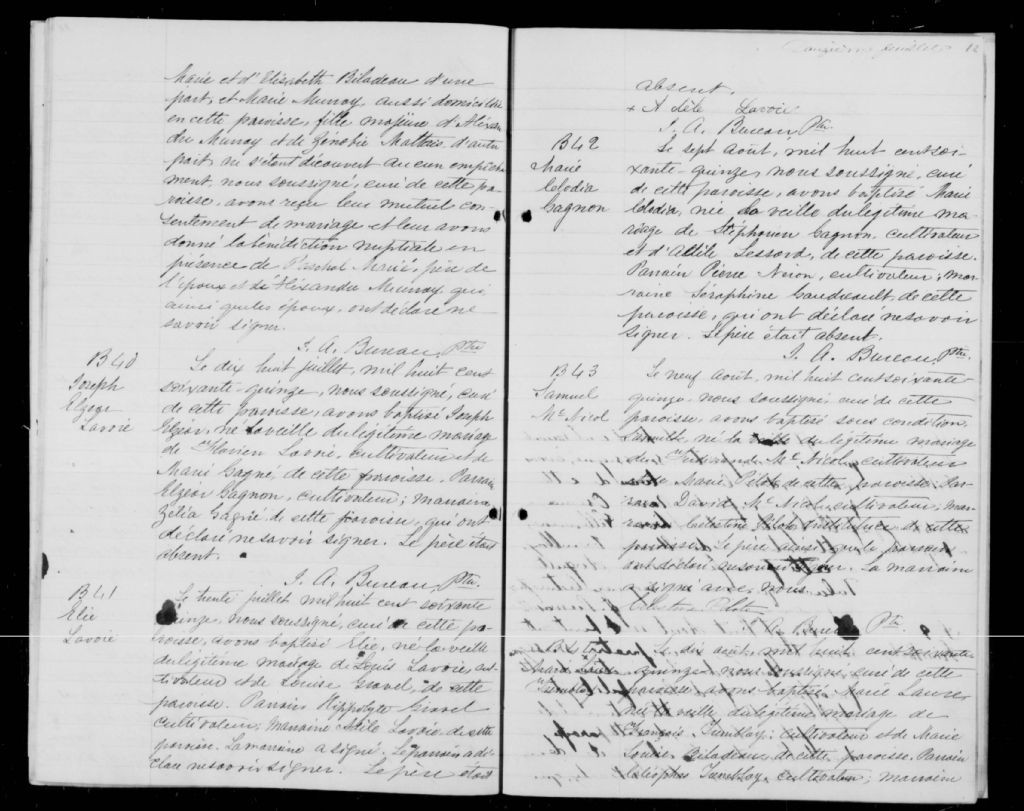 Marie et d'Elisabeth Biladeau d'une
part, et Marie Murray, aussi domiciliée
en cette paroisse, fille majeure d'Alexan
dre Murray et de Zénobie Mattais d'autre
part, ni s'étant découvert aucun empêche
ment, nous soussigné, curé de cette pa-
roisse, avons reçu leur mutuel con-
sentement de mariage et leur avons
donné la bénédiction nuptiale en
présence de Paschal Marié, père de
l'époux et de Alexandre Murray qui,
ainsi que les époux, ont déclaré ne
savoir signer.
J. A. Bureau, Ptre
B40
Joseph
Elzear
Lavoie
Le dix huit juillet, mil huit cent
soixante-quinze, nous soussigné, curé
de cette paroisse, avons baptisé Joseph
Elzéar, né la veille du légitime mariage
de Florien Lavoie, cultivateur et de
Marie Gagné, de cette paroisse. Parrain
Elzéar Gagnon, cultivateur; marraine
Zélia Gagné de cette paroisse, qui ont
déclaré ne savoir signer. Le père était
absent.
J. A. Bureau, Ptre.
B41
Elie
Lavoie
Le trente juillet mil huit cent soixante
quinze, nous soussigné, curé de cette pa-
roisse, avons baptisé Elie, né la veille
du légitime mariage de Louis Lavoie, cul-
tivateur et de Louise Gravel, de cette
paroisse. Parrain Hippolyte Gravel
cultivateur; Marraine Adèle Lavoie de cette
paroisse. La marraine a signé. Le parrain a dé-
claré ne savoir signer. Le père était
Douzième feuillet 12
absent.
+ Adèle Lavoie
J. A. Bureau, Ptre.
B42
Marie
Clodia
Gagnon
Le sept août, mil huit cent soi-
xante-quinze, nous soussigné, curé
de cette paroisse, avons baptisé Marie
Clodia, née la veille du légitime ma-
riage de Stéphouen Gagnon, cultivateur
et d'Adèle Lessard, de cette paroisse.
Parrain Pierre Niron, cultivateur; mar
raine Séraphine Gaudreault, de cette
paroisse, qui ont déclaré ne savoir
signer. Le père était absent.
J. A. Bureau, Ptre.
B43
Samuel
Mc Nicol
Le neuf août, mil huit cent soixante
quinze, nous soussigné, curé de cette
paroisse, avons baptisé sous condition
né la veille du légitime mariage
de Ferdinand Mc Nicol, cultivateur
et de Marie Pilote de cette paroisse. Par-
rain David Mc Nicol, cultivateur; mar-
raine Célestine Pilote institutrice de cette
paroisse. Le père ainsi que le parrain
ont déclaré ne savoir signer. La marraine
a signé avec nous.
Pilote
J. A. Bureau Ptre.
Tremblay
Le dix août, mil huit cent soixante
quinze, nous soussigné, curé de cette
paroisse, avons baptisé Marie Laure
née la veille du légitime mariage de
François Tremblay, cultivateur et de Marie
Louise Biladeau, de cette paroisse. Parrain
Cléophas Tremblay, cultivateur; marraine